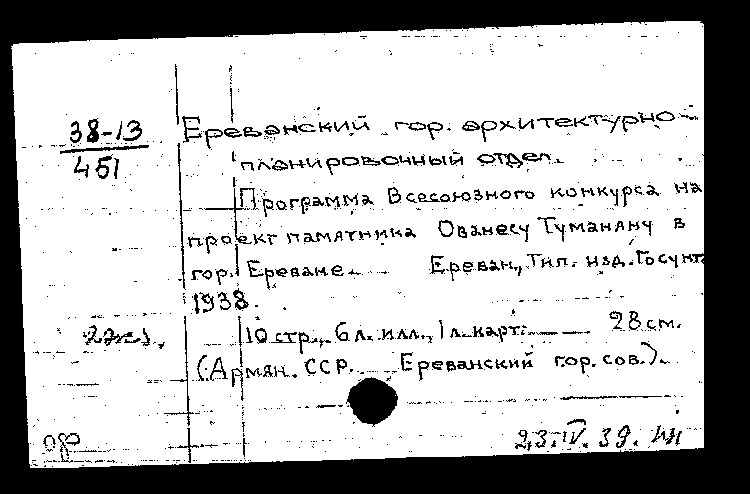 38-13
451
Ереванский гор. архитектурно-
планировочный отдел.
Программа Всесоюзного конкурса на
проект памятника Ованесу Туманяну в
гор. Ереване. Ереван, Тип. изд. Госунта
1938.
2 экз.
10 стр., 6 л. илл., 1 л. карт. 28 см.
(Армян. ССР. Ереванский гор. сов.).
23.IV.39.